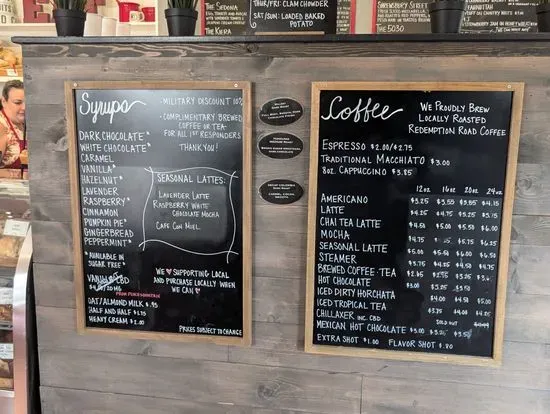 THE SEDONIA
THE KIERA
THU/FRI: CLAM CHOWDER
SAT/SUN: LOADED BAKED
POTATO
SHREWSBURY STREET
THE 5030
Syrups
DARK CHOCOLATE*
WHITE CHOCOLATE*
CARAMEL
VANILLA*
HAZELNUT*
LAVENDER
RASPBERRY*
CINNAMON
PUMPKIN PIE
GINGERBREAD
PEPPERMINT*
*AVAILABLE IN
SUGAR FREE*
VANILLA CBD
OAT/ALMOND MILK $.95
HALF AND HALF $1.75
HEAVY CREAM $2.00
- MILITARY DISCOUNT 10%
- COMPLIMENTARY BREWED
COFFEE OR TEA
FOR ALL 1ST RESPONDERS
THANK YOU!
SEASONAL LATTES:
LAVENDER LATTE
RASPBERRY WHITE
CHOCOLATE MOCHA
CAFE CON MIEL
WE ❤ SUPPORTING LOCAL
AND PURCHASE LOCALLY WHEN
WE CAN ❤
PRICES SUBJECT TO CHANGE
Coffee
WE PROUDLY BREW
LOCALLY ROASTED
REDEMPTION ROAD COFFEE
ESPRESSO $2.00/$2.75
TRADITIONAL MACCHIATO $3.00
8oz. CAPPUCCINO $3.85
12oz 16oz 20oz 24oz
AMERICANO $3.25 $3.55 $3.85 $4.15
LATTE $4.25 $4.75 $5.25 $5.75
CHAI TEA LATTE $4.50 $5.00 $5.50 $6.00
MOCHA $4.75 $5.75 $6.25
SEASONAL LATTE $5.00 $5.50 $6.00 $6.50
STEAMER $3.75 $4.25 $4.50 $4.75
BREWED COFFEE TEA $2.75 $3.25
HOT CHOCOLATE $3.00 $3.25 $3.50
ICED DIRTY HORCHATA $4.00 $4.50 $5.00
ICED TROPICAL TEA $3.75 $4.00 $4.25
CHILLAXER INC. CBD SOLD OUT
MEXICAN HOT CHOCOLATE $3.00 $3.25 $3.50
EXTRA SHOT $1.00 FLAVOR SHOT $.70